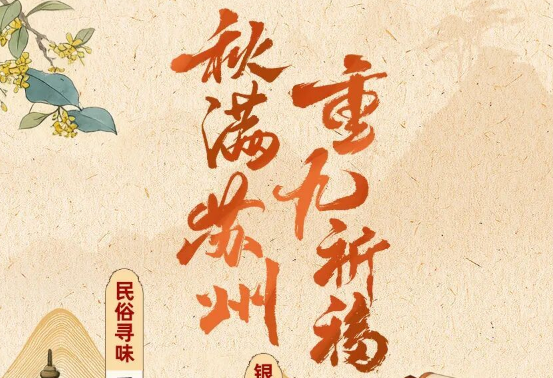 秋满苏州
重九祈福
民俗寻味
银